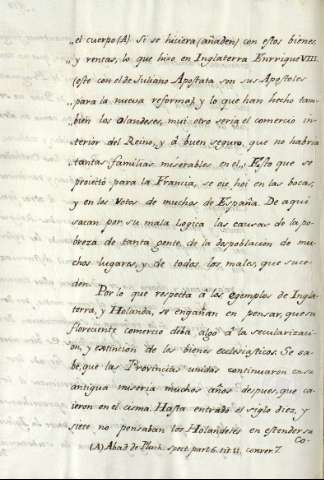 „el cuerpo (A) Si se hiciera (añaden) con estos bienes
„y rentas, lo que hizo en Inglaterra Enrrique VIII.
„(este con el de Juliano Apostata son sus Apostoles
„para la nueva reforma) y lo que han hecho tam
„bien los Olandeses, mui otro seria el comercio in
„terior del Reino, y á buen seguro, que no habria
„tantas familias miserables en el„. Esto que se
proiectó para la Francia, se oie hoi en las bocas,
y en los Votos de muchos de España. De aqui
sacan por su mala Logica las causas de la po
breza de tanta gente, de la despoblacion de mu
chos lugares, y de todos los males, que suce
den.
Por lo que respecta á los egemplos de Ingla
terra, y Holanda, se engañan en pensar, que su
floreciente comercio deba algo á la secularizaci
on, y extincion de los bienes eclesiasticos. Se sa
be, que las Provincias unidas continuaron en su
antigua miseria muchos años despues, que ca
ieron en el cisma. Hasta entrado el siglo diez, y
siete no pensaban los Holandeses en estender su
Co-
(A) Abad. de Pluch. spect. part. 6. tit. 11. conver. 7.